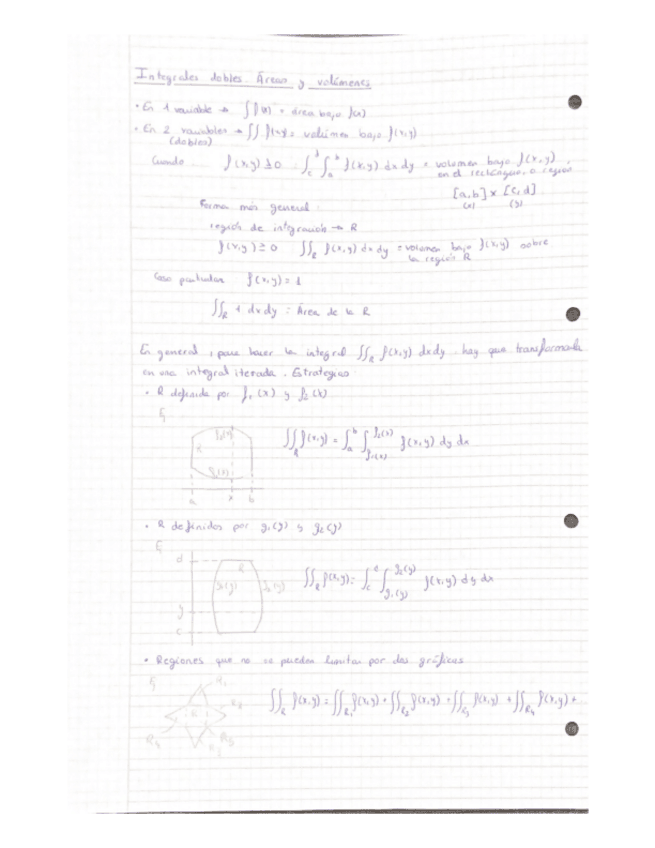 Integrales dobles. Áreas y volúmenes
• En 1 variable → ∫ f(x) = área bajo f(x)
• En 2 variables → ∫∫ f(x,y) = volúmen bajo f(x,y)
(dobles)
Cuando f(x,y) ≥ 0 = ∫_c^d ∫_a^b f(x,y) dx dy = volumen bajo f(x,y),
en el rectángulo o región
[a,b] x [c,d]
(x) (y)
Forma más general:
región de integración → R
f(x,y) ≥ 0 ∫∫_R f(x,y) dx dy = volumen bajo f(x,y) sobre
la región R
Caso particular f(x,y) = 1
∫∫_R 1 dx dy = Área de la R
En general, para hacer la integral ∫∫_R f(x,y) dx dy hay que transformarla
en una integral iterada. Estrategias
• R definida por f₁(x) y f₂(x)
Ej
f₂(x)
R
f₁(x)
a x b
∫∫_R f(x,y) = ∫_a^b ∫_{f₁(x)}^{f₂(x)} f(x,y) dy dx
• R definidos por g₁(y) y g₂(y)
Ej
d
R
g₁(y) g₂(y)
y
c
∫∫_R f(x,y) = ∫_c^d ∫_{g₁(y)}^{g₂(y)} f(x,y) dy dx
• Regiones que no se pueden limitar por dos gráficas
Ej
R₁
R₂
R
R₄ R₃
∫∫_R f(x,y) = ∫∫_R₁ f(x,y) + ∫∫_R₂ f(x,y) + ∫∫_R₃ f(x,y) + ∫∫_R₄ f(x,y) +